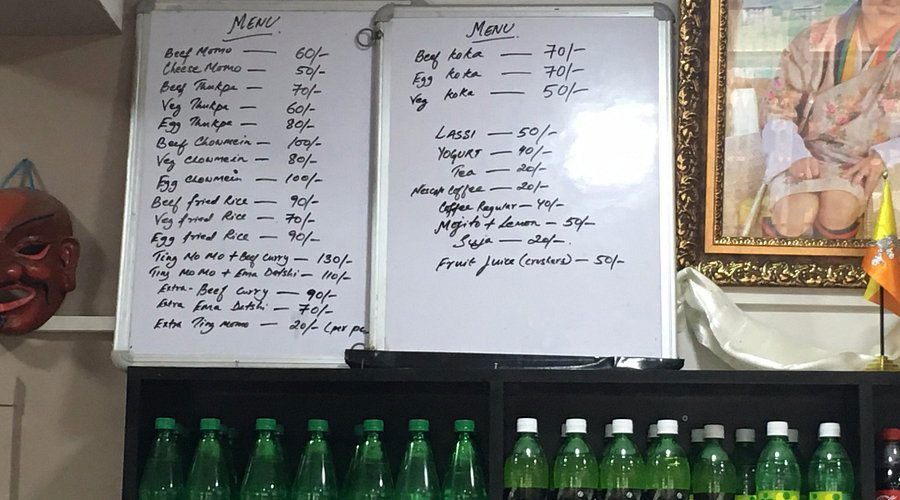 MENU
Beef Momo — 60/-
Cheese Momo — 50/-
Beef Thukpa — 70/-
Veg Thukpa — 60/-
Egg Thukpa — 80/-
Beef Chowmein — 100/-
Veg Chowmein — 80/-
Egg Chowmein — 100/-
Beef fried Rice — 90/-
Veg fried Rice — 70/-
Egg fried Rice — 90/-
Ting Mo Mo + Beef Curry — 130/-
Ting Mo Mo + Ema Datshi — 110/-
Extra - Beef Curry — 90/-
Extra Ema Datshi — 70/-
Extra Ting momo — 20/- (per pc
MENU
Beef Koka — 70/-
Egg Koka — 70/-
Veg Koka — 50/-
LASSI — 50/-
YOGURT — 40/-
Tea — 20/-
Nescafe Coffee — 20/-
Coffee Regular — 40/-
Mojito + Lemon — 50/-
Suja — 20/-
Fruit Juice (crushers) — 50/-